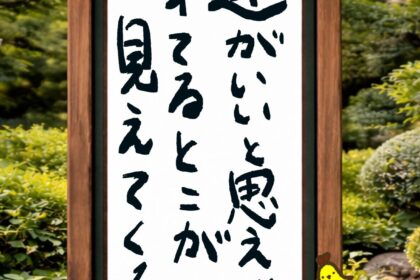 がいいと思え
てるとこが
見えてく